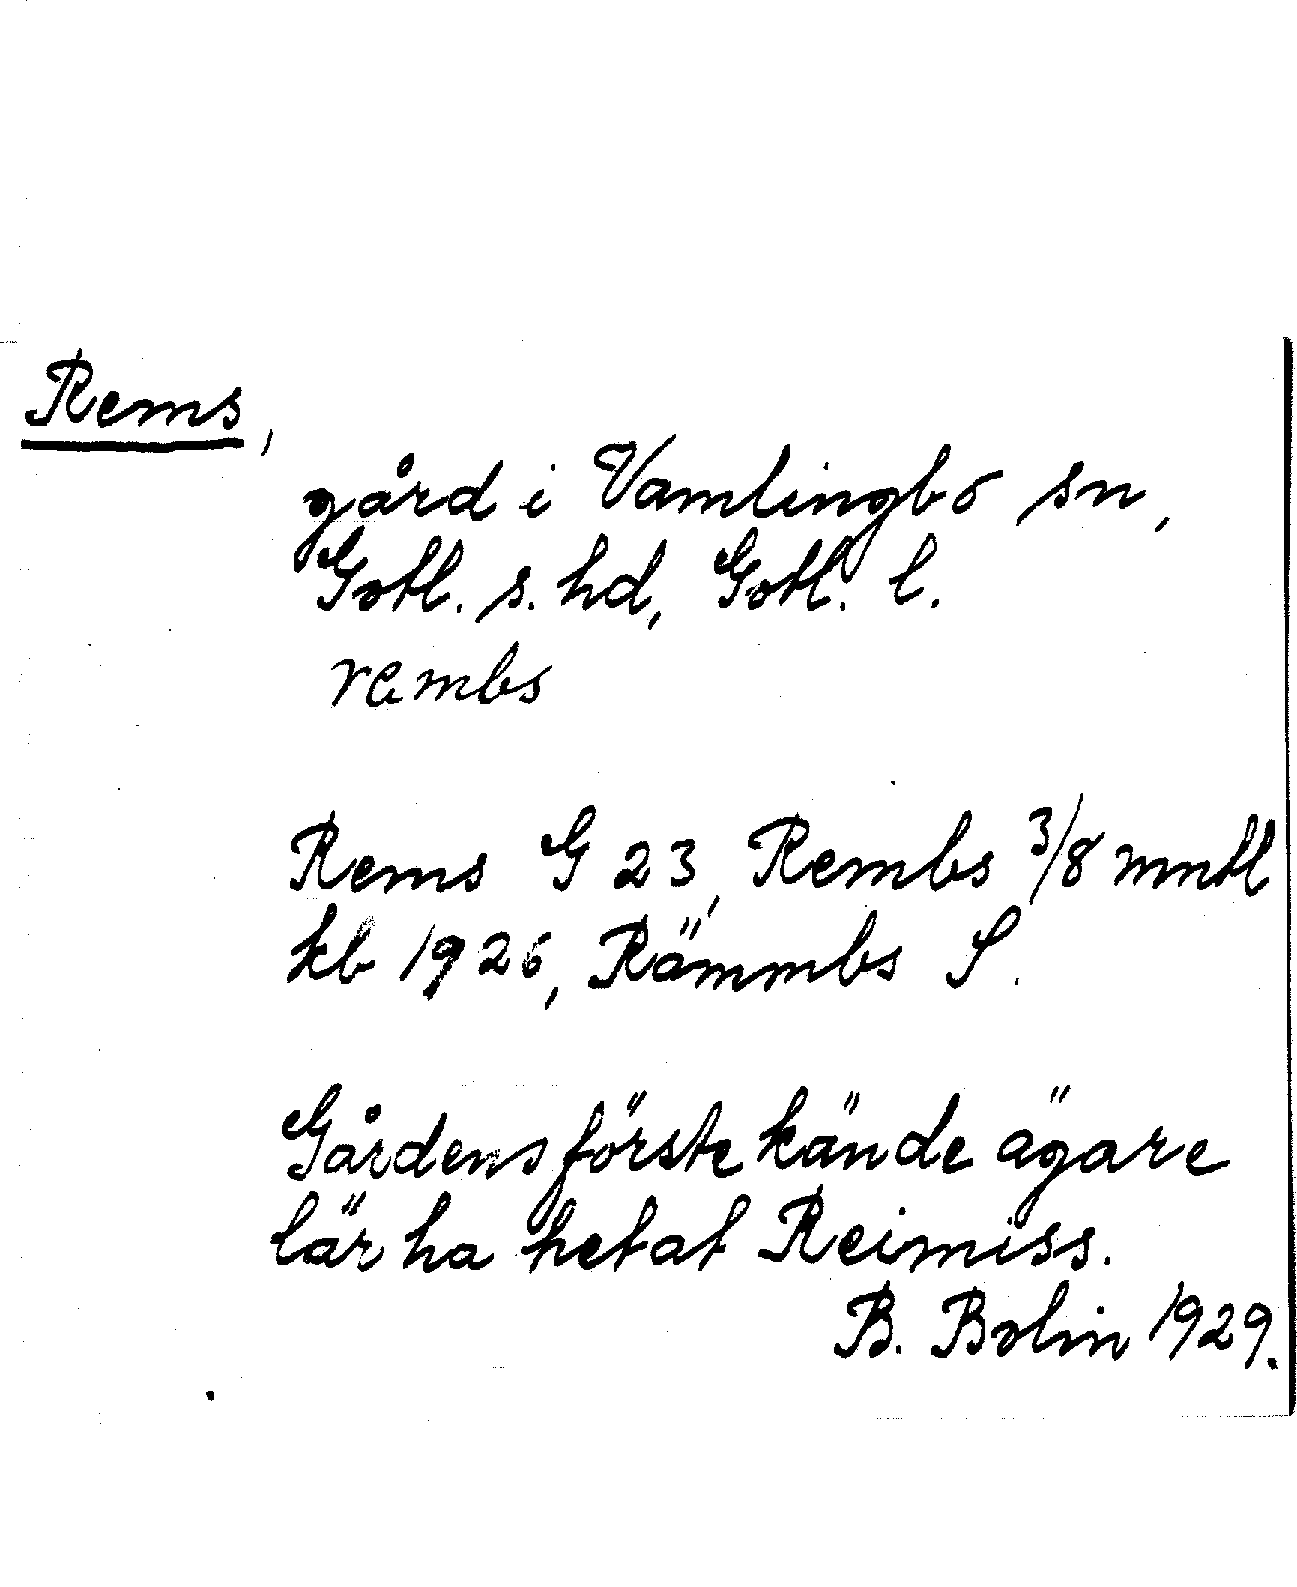 Rems,
gård i Vamlingbo sn,
Gotl. s. hd, Gotl. l.
rembs
Rems G 23, Rembs 3/8 mntl
kb 1926, Rämmbs S.
Gårdens förste kände ägare
lär ha hetat Reimiss.
B. Bolin 1929.